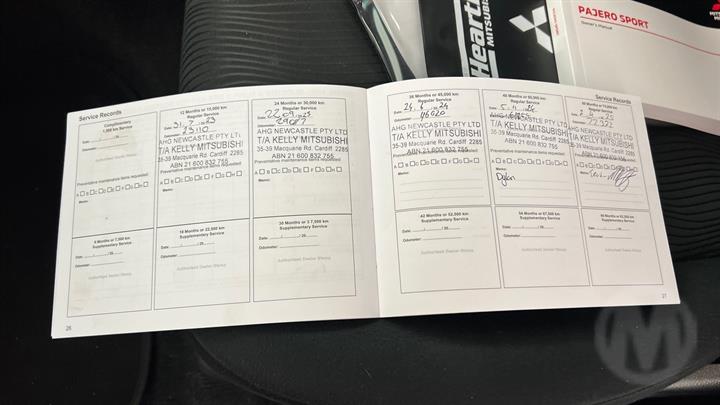 Hearts
MITSUBISHI
PAJERO SPORT
Owner's Manual
Service Records
Complimentary
1,500 km Service
Date:
Odometer:
Authorised Dealer Stamp
12 Months or 15,000 km
Regular Service
Date: 31.7.2023
Odometer: 23110
AHG NEWCASTLE PTY LTD
T/A KELLY MITSUBISHI
35-39 Macquarie Rd. Cardiff 2285
ABN 21 600 832 755
Preventative maintenance items requested:
A B C D E F G H
Memo:
24 Months or 30,000 km
Regular Service
Date:
Odometer:
AHG NEWCASTLE PTY LTD
T/A KELLY MITSUBISHI
35-39 Macquarie Rd. Cardiff 2285
ABN 21 600 832 755
Preventative maintenance items requested:
A B C D E F G H
Memo:
6 Months or 7,500 km
Supplementary Service
Date: / / 20
Odometer:
Authorised Dealer Stamp
18 Months or 22,500 km
Supplementary Service
Date: / / 20
Odometer:
Authorised Dealer Stamp
30 Months or 37,500 km
Supplementary Service
Date: / / 20
Odometer:
Authorised Dealer Stamp
26
36 Months or 45,000 km
Regular Service
Date:
Odometer: 46620
AHG NEWCASTLE PTY LTD
T/A KELLY MITSUBISHI
35-39 Macquarie Rd. Cardiff 2285
ABN 21 600 832 755
Preventative maintenance items requested:
A B C D E F G H
Memo:
48 Months or 60,000 km
Regular Service
AHG NEWCASTLE PTY LTD
T/A KELLY MITSUBISHI
35-39 Macquarie Rd. Cardiff 2285
ABN 21 600 832 755
Preventative maintenance items requested:
A B C D E F G H
Memo:
Dylan
Service Records
60 Months or 75,000 km
Regular Service
AHG NEWCASTLE PTY LTD
T/A KELLY MITSUBISHI
35-39 Macquarie Rd. Cardiff 2285
ABN 21 600 832 755
Preventative maintenance items requested:
A B C D E F G H
Memo:
42 Months or 52,500 km
Supplementary Service
Date: / / 20
Odometer:
Authorised Dealer Stamp
54 Months or 67,500 km
Supplementary Service
Date: / / 20
Odometer:
Authorised Dealer Stamp
Supplementary Service
Date: / / 20
Odometer:
Authorised Dealer Stamp
27
M